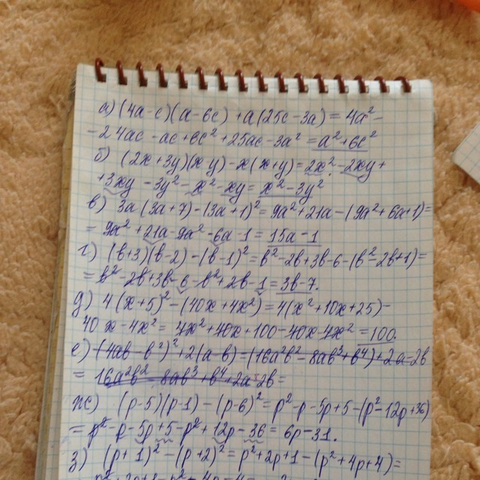 а) (4a-c)(a-6c)+a(25c-3a)=4a²-
-24ac-ac+6c²+25ac-3a²=a²+6c²
б) (2x+3y)(x y)-x(x+y)=2x²-2xy+
+3xy-3y²-x²-xy=x²-3y²
в) 3a(3a+7)-(3a+1)²=9a²+21a-(9a²+6a+1)=
=9a²+21a-9a²-6a-1=15a-1
г) (b+3)(b-2)-(b-1)²=b²-2b+3b-6-(b²-2b+1)=
=b²-2b+3b-6-b²+2b-1=3b-7.
д) 4(x+5)²-(40x+4x²)=4(x²+10x+25)-
40x-4x²=4x²+40x+100-40x-4x²=100.
е) (4ab-b²)²+2(a-b)=(16a²b²-8ab³+b⁴)+2a-2b
=16a²b²-8ab³+b⁴+2a-2b=
ж) (p-5)(p-1)-(p-6)²=p²-p-5p+5-(p²-12p+36)
=p²-p-5p+5-p²+12p-36=6p-31.
з) (p+1)²-(p+2)²=p²+2p+1-(p²+4p+4)=